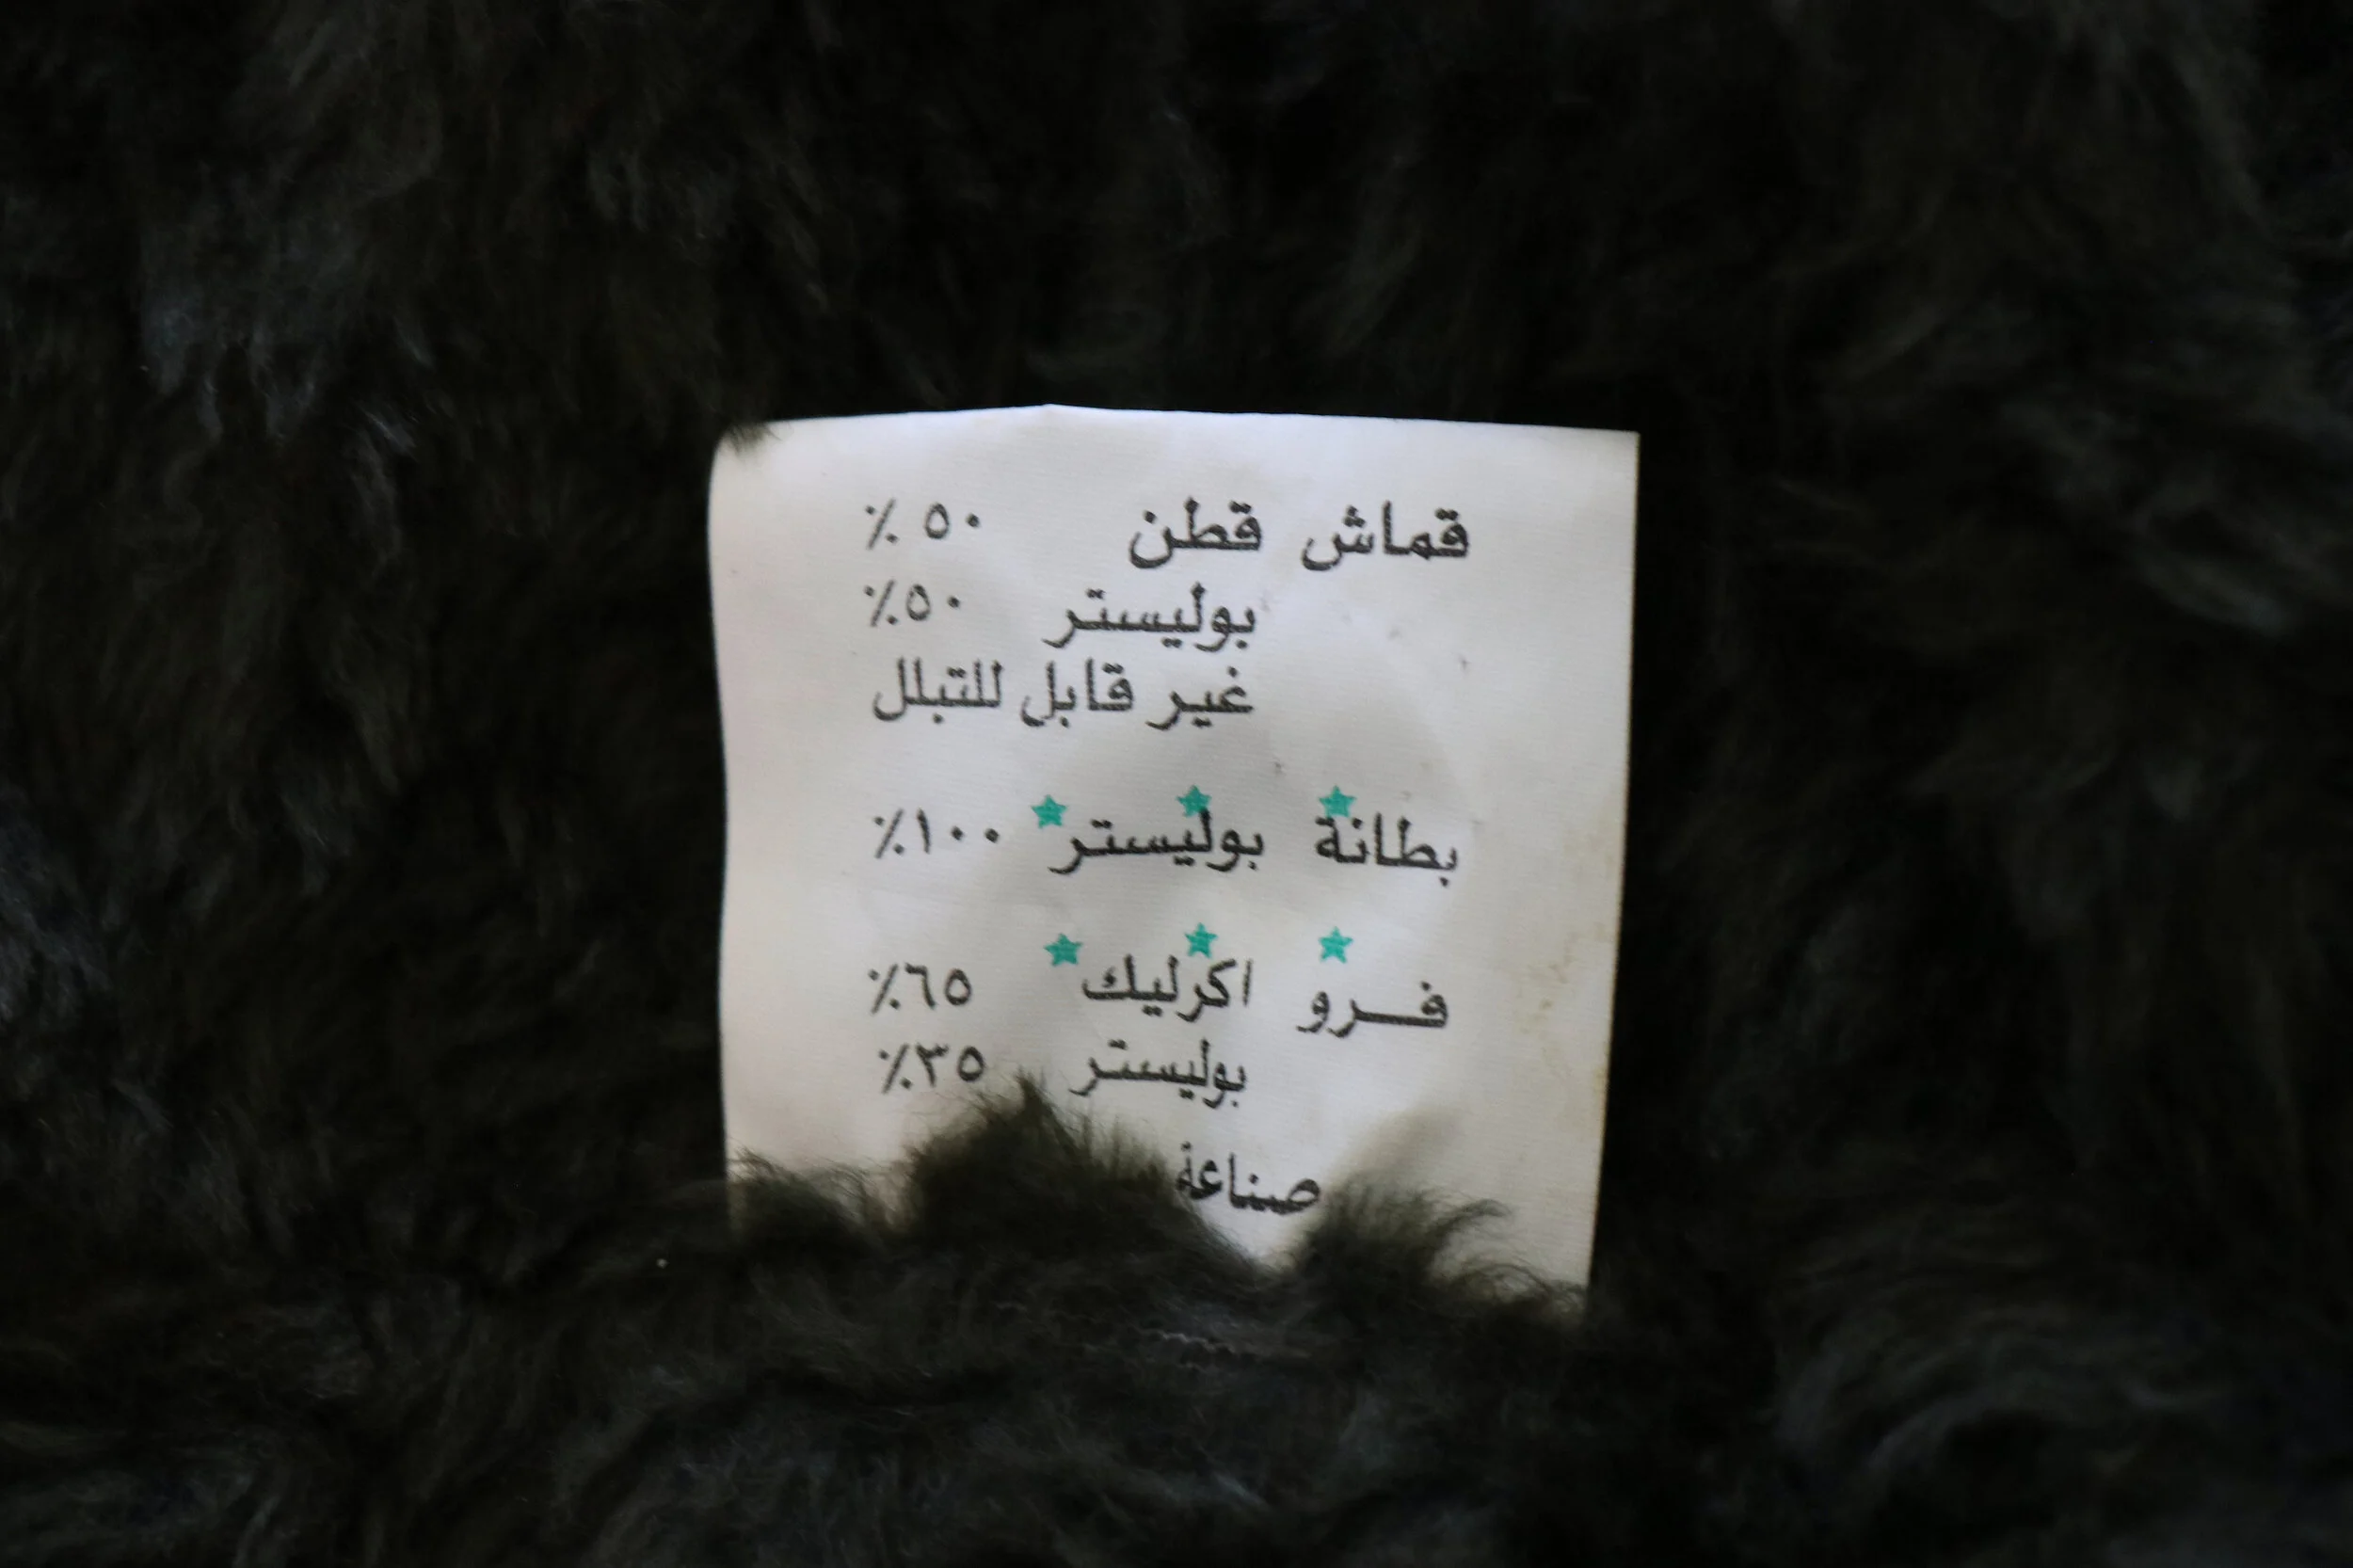 قماش قطن ٥٠ ٪
بوليستر ٥٠٪
غير قابل للتبلل
بطانة بوليستر ١٠٠٪
فرو اكرليك ٦٥٪
بوليستر ٣٥٪
صناعة